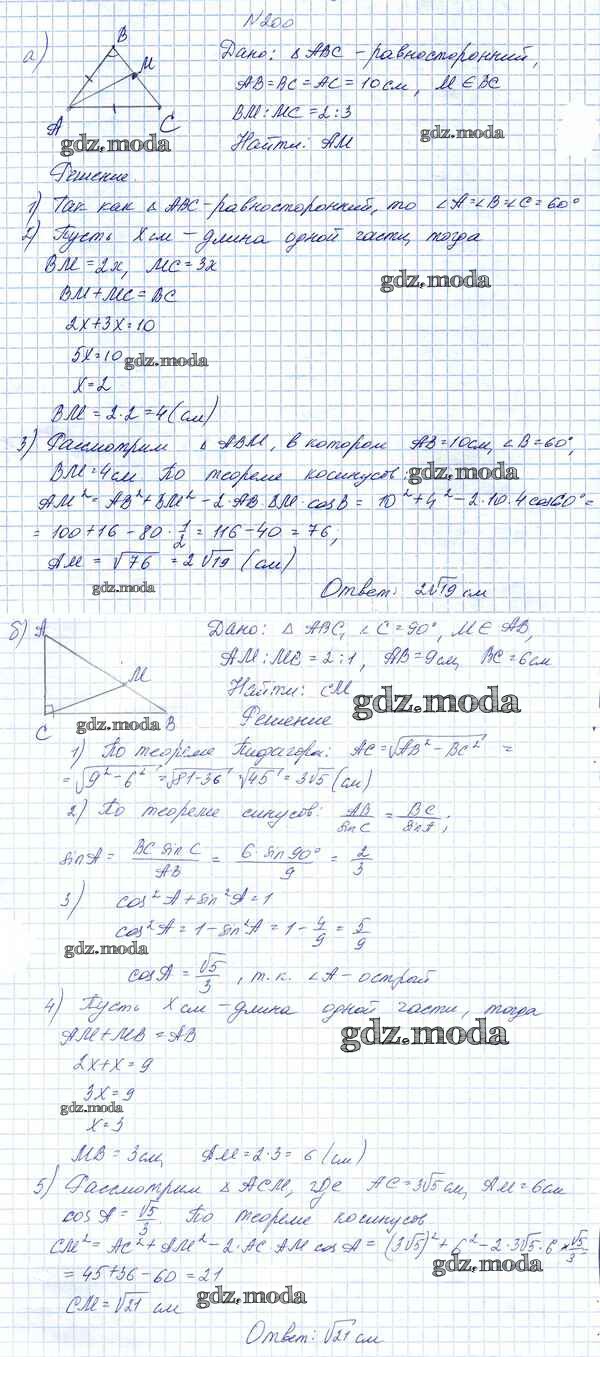 N200
а)
B
M
A
C
Дано: △ABC - равносторонний,
AB = BC = AC = 10 см, M ∈ BC
BM : MC = 2 : 3
Найти: AM
gdz.moda
gdz.moda
Решение
1) Так как △ABC - равносторонний, то ∠A = ∠B = ∠C = 60°
2) Пусть x см - длина одной части, тогда
BM = 2x, MC = 3x
gdz.moda
BM + MC = BC
2x + 3x = 10
5x = 10
gdz.moda
x = 2
BM = 2·2 = 4 (см)
3) Рассмотрим △ABM, в котором AB = 10 см, ∠B = 60°,
BM = 4 см. По теореме косинусов:
gdz.moda
AM² = AB² + BM² - 2·AB·BM·cosB = 10² + 4² - 2·10·4 cos60° =
= 100 + 16 - 80 · 1/2 = 116 - 40 = 76,
AM = √76 = 2√19 (см)
gdz.moda
Ответ: 2√19 см
б)
A
M
C
B
Дано: △ABC, ∠C = 90°, M ∈ AB,
AM : MB = 2 : 1, AB = 9 см, BC = 6 см
Найти: CM
gdz.moda
gdz.moda
Решение
1) По теореме Пифагора: AC = √AB² - BC² =
= √9² - 6² = √81 - 36 = √45 = 3√5 (см)
2) По теореме синусов: AB/sinC = BC/sinA;
sinA = BC sinC/AB = 6·sin90°/9 = 2/3
3) cos²A + sin²A = 1
cos²A = 1 - sin²A = 1 - 4/9 = 5/9
gdz.moda
cosA = √5/3, т.к. ∠A - острый
4) Пусть x см - длина одной части, тогда
AM + MB = AB
gdz.moda
2x + x = 9
3x = 9
gdz.moda
x = 3
MB = 3 см, AM = 2·3 = 6 (см)
5) Рассмотрим △ACM, где AC = 3√5 см, AM = 6 см
cosA = √5/3. По теореме косинусов
CM² = AC² + AM² - 2·AC·AM cosA = (3√5)² + 6² - 2·3√5·6·√5/3 =
gdz.moda
= 45 + 36 - 60 = 21
CM = √21 см
gdz.moda
Ответ: √21 см